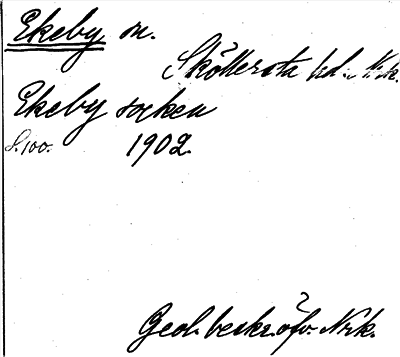 Ekeby sn.
Sköllersta hd. Nrk.
Ekeby socken
S. 100. 1902.
Geol. beskr. öfv. Nrk.